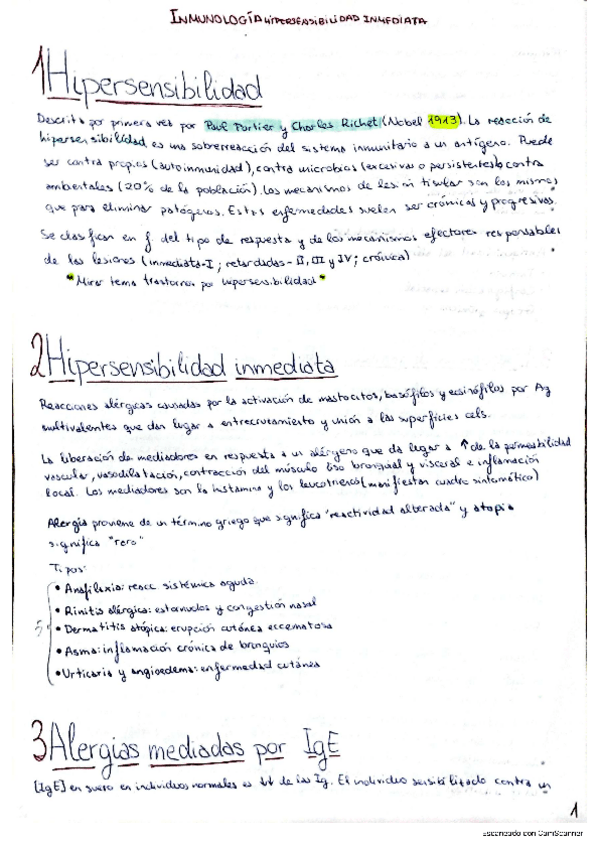 INMUNOLOGÍA HIPERSENSIBILIDAD INMEDIATA
1 Hipersensibilidad
Descrita por primera vez por Paul Portier y Charles Richet (Nobel 1913). La reacción de
hipersensibilidad es una sobrerreacción del sistema inmunitario a un antígeno. Puede
ser contra propios (autoinmunidad), contra microbios (excesivas o persistentes) o contra
ambientales (20% de la población). Los mecanismos de lesión tisular son los mismos
que para eliminar patógenos. Estas enfermedades suelen ser crónicas y progresivas.
Se clasifican en f del tipo de respuesta y de los mecanismos efectores responsables
de las lesiones (inmediata-I; retardadas-II, III y IV; crónica)
*Mirar tema trastornos por hipersensibilidad*
2 Hipersensibilidad inmediata
Reacciones alérgicas causadas por la activación de mastocitos, basófilos y eosinófilos por Ag
multivalentes que dan lugar a entrecruzamiento y unión a las superficies cels.
La liberación de mediadores en respuesta a un alérgeno que da lugar a ↑ de la permeabilidad
vascular, vasodilatación, contracción del músculo liso bronquial y visceral e inflamación
local. Los mediadores son la histamina y los leucotrienos (manifiestan cuadro sintomático)
Alergia proviene de un término griego que significa "reactividad alterada" y atopia
significa "raro"
Tipos:
• Anafilaxia: reacc sistémica aguda
• Rinitis alérgica: estornudos y congestión nasal
5 • Dermatitis atópica: erupción cutánea eccematosa
• Asma: inflamación crónica de bronquios
• Urticaria y angioedema: enfermedad cutánea
3 Alergias mediadas por IgE
[IgE] en suero en individuos normales es ↓↓ de las Ig. El individuo sensibilizado contra un
1
Escaneado con CamScanner